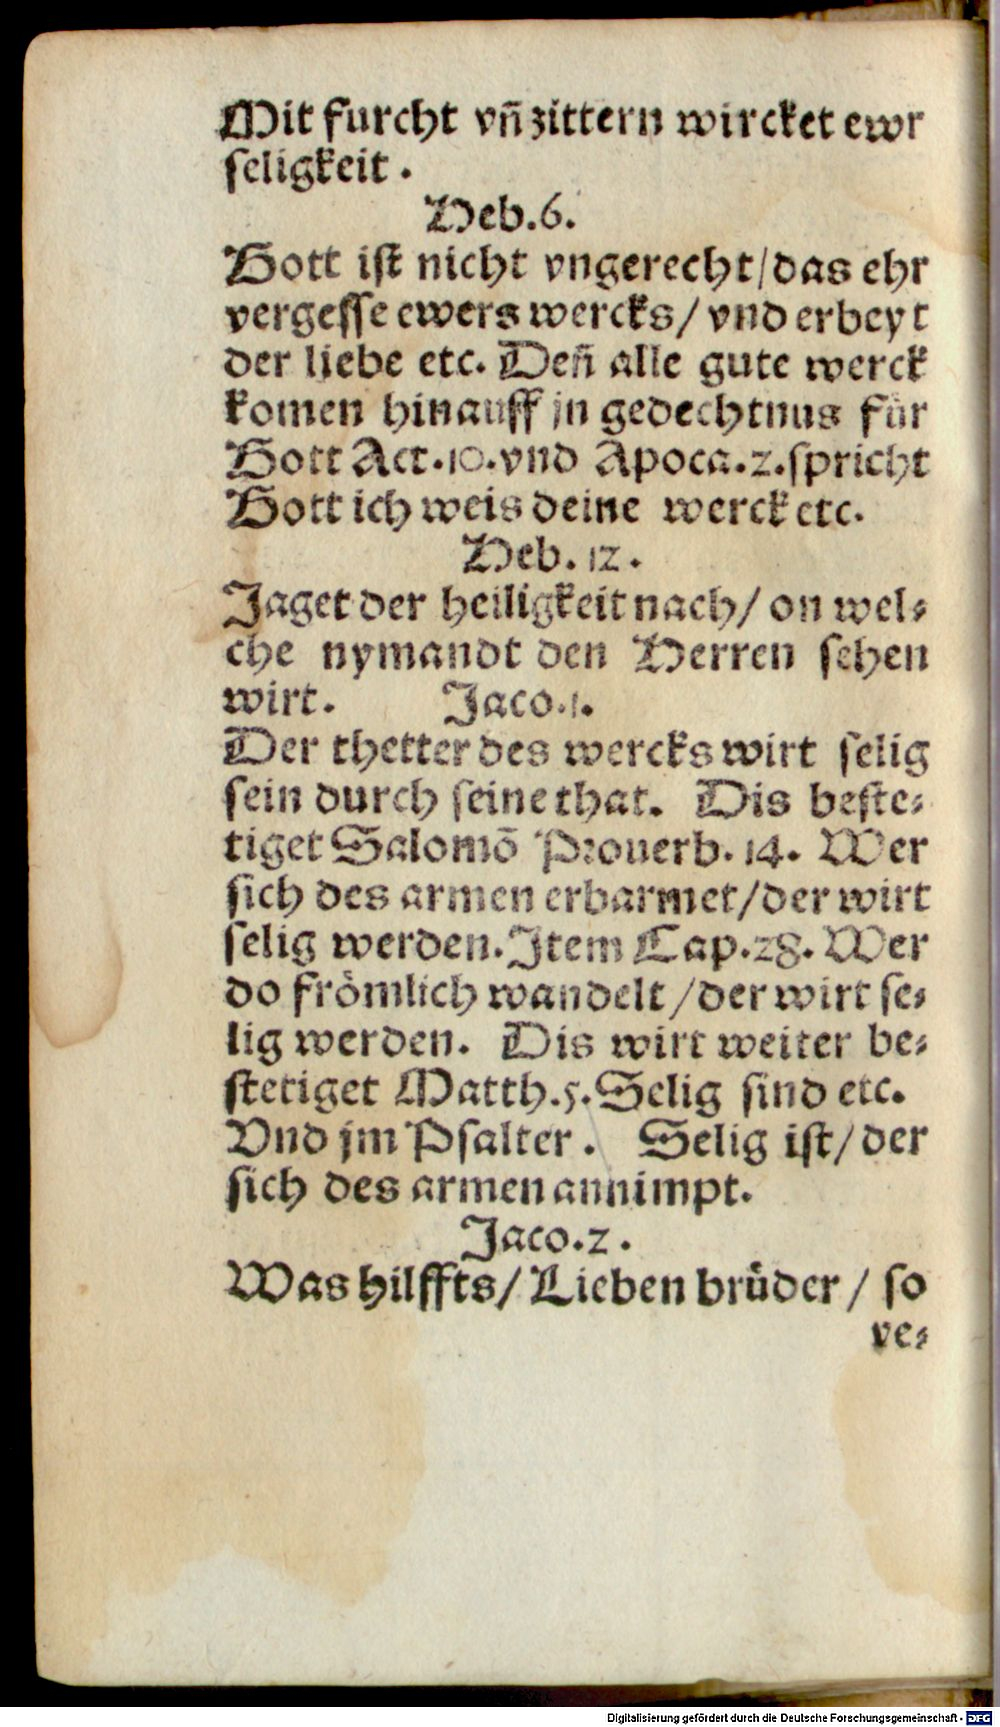 Mit furcht vñ zittern wircket ewr
seligkeit.
Heb.6.
Gott ist nicht vngerecht/das ehr
vergesse ewers wercks/vnd erbeyt
der liebe etc. Deñ alle gute werck
komen hinauff jn gedechtnus für
Gott Act.10.vnd Apoca.2.spricht
Gott ich weis deine werck etc.
Heb.12.
Jaget der heiligkeit nach/ on wel⸗
che nymandt den Herren sehen
wirt. Jaco.1.
Der thetter des wercks wirt selig
sein durch seine that. Dis beste⸗
tiget Salomõ Prouerb.14. Wer
sich des armen erbarmet/der wirt
selig werden.Jtem Cap.28. Wer
do frömlich wandelt/der wirt se⸗
lig werden. Dis wirt weiter be⸗
stetiget Matth.5.Selig sind etc.
Vnd jm Psalter. Selig ist/der
sich des armen annimpt.
Jaco.2.
Was hilffts/Lieben brüder/ so
ve⸗
Digitalisierung gefördert durch die Deutsche Forschungsgemeinschaft - DFG